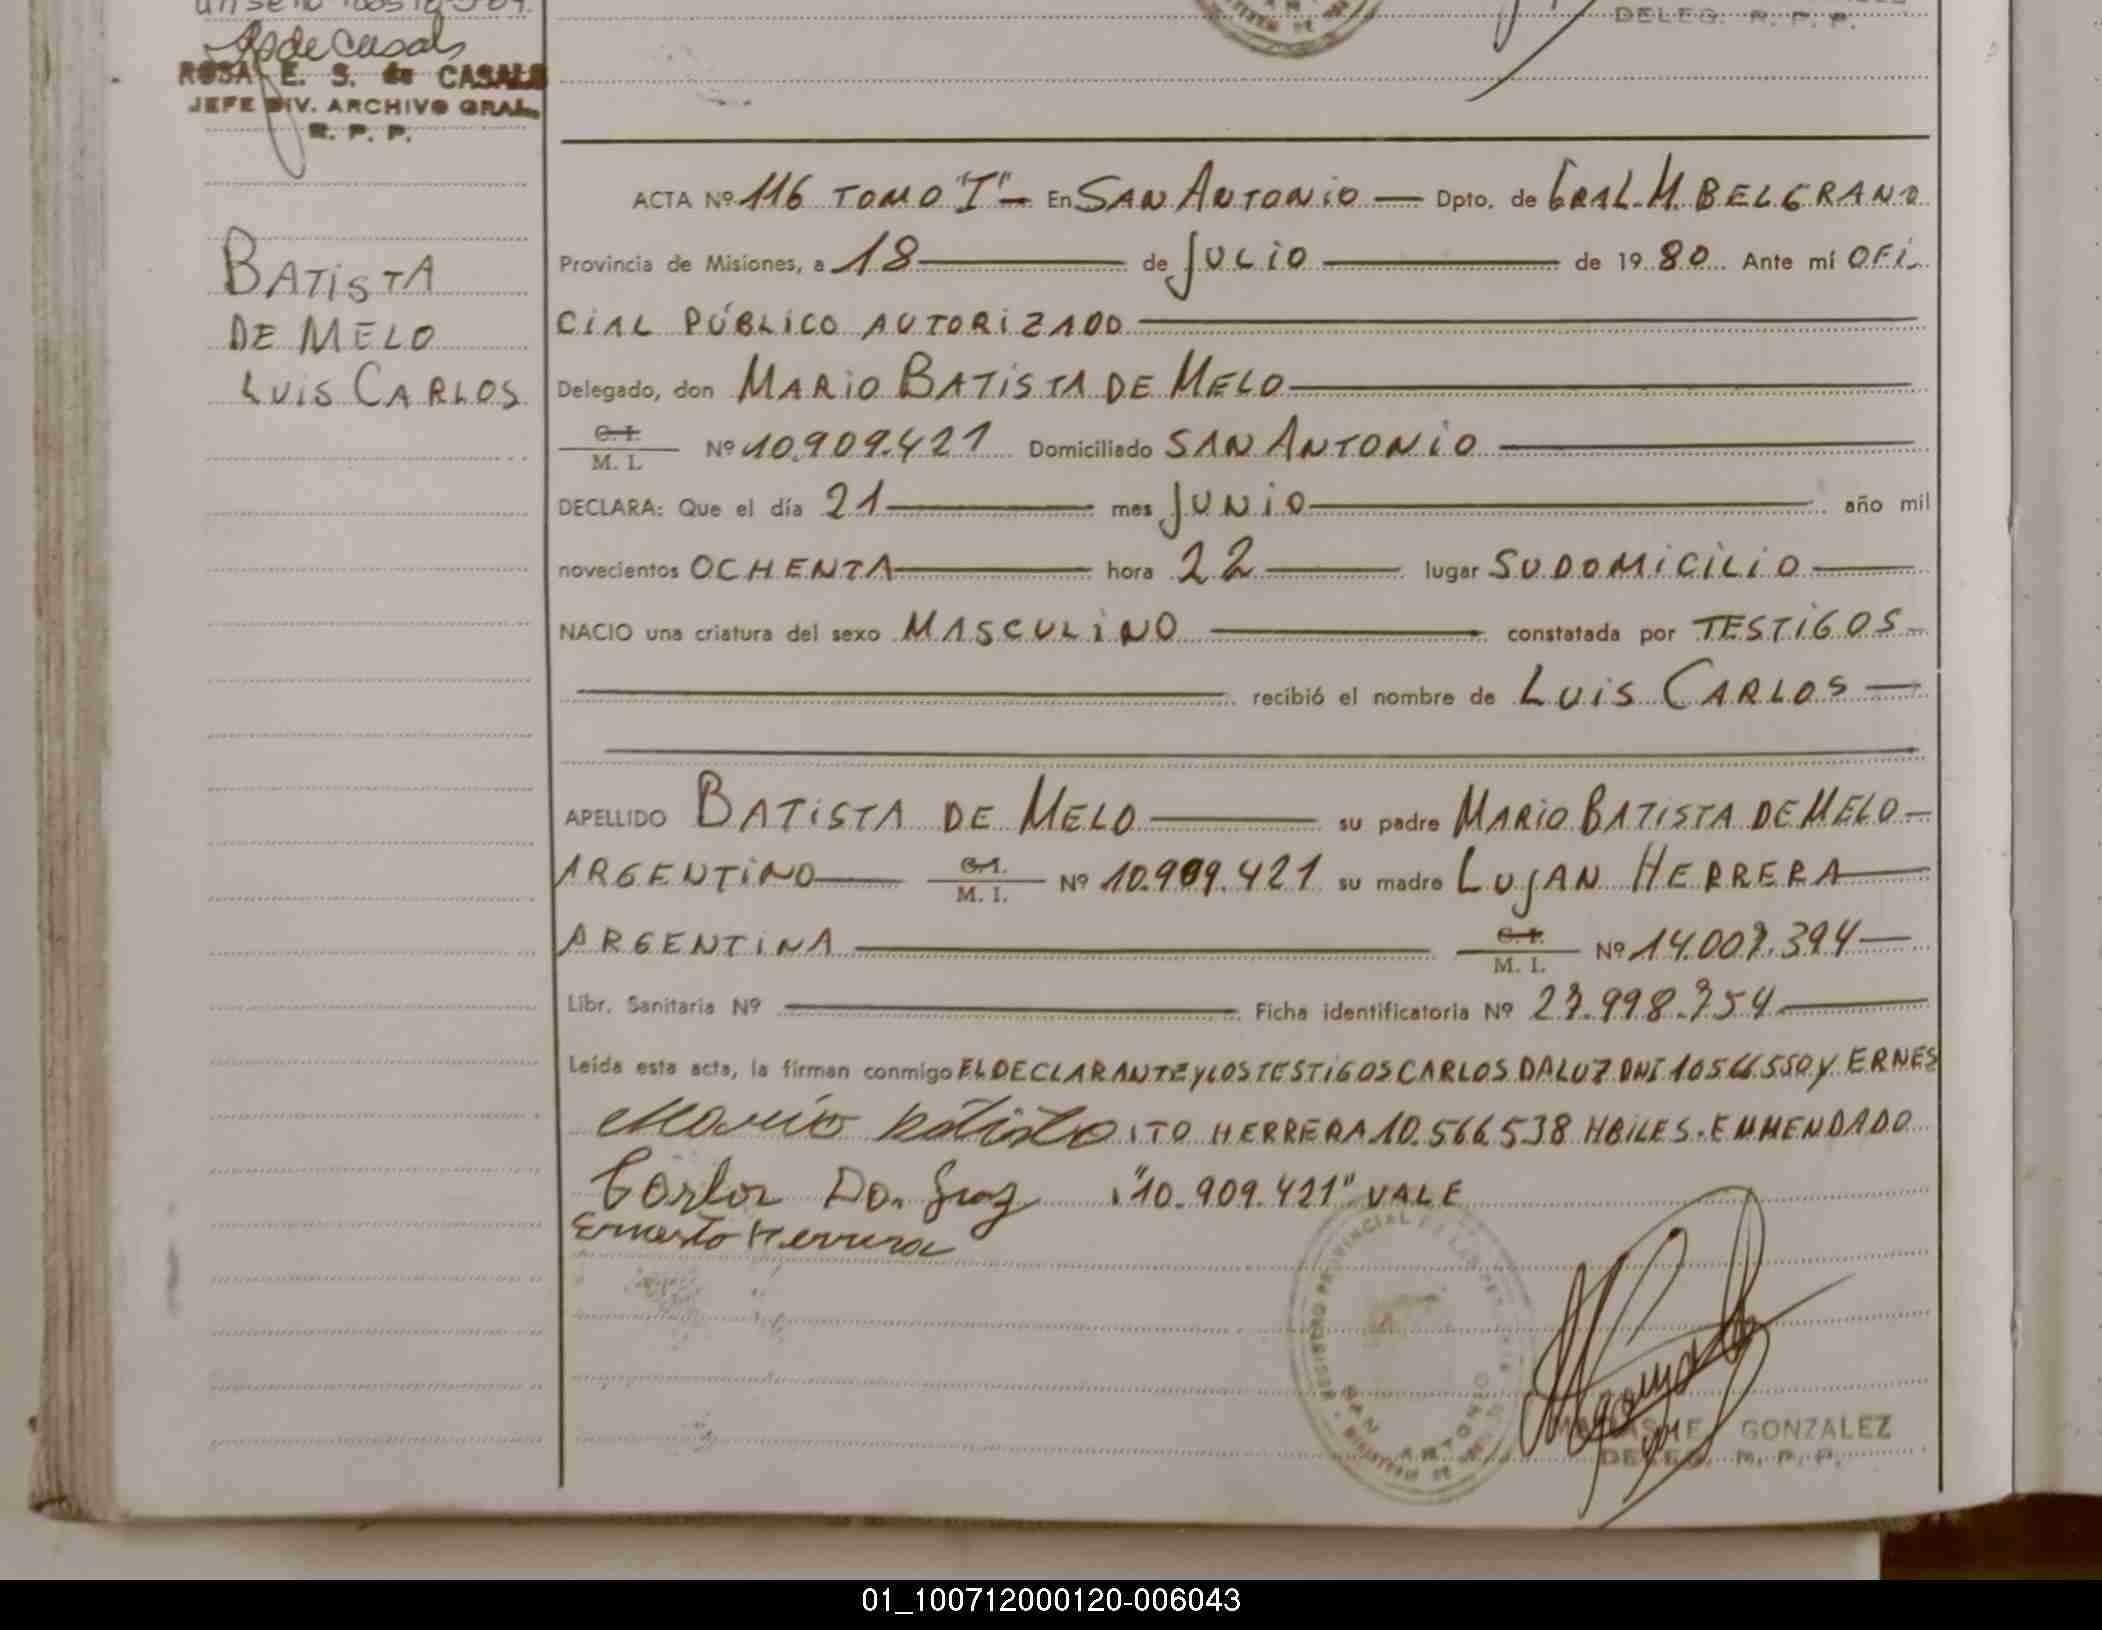 Rs de Casals
ROSA E. S. de CASALS
JEFE DIV. ARCHIVO GRAL.
R. P. P.
DELEG. R. P. P.
BATISTA
DE MELO
LUIS CARLOS
ACTA Nº 116 TOMO "I" — En SAN ANTONIO — Dpto. de GRAL. M. BELGRANO
Provincia de Misiones, a 18 de JULIO de 1980 Ante mí OFI
CIAL PÚBLICO AUTORIZADO
Delegado, don MARIO BATISTA DE MELO
C. I.
M. I. Nº 10.909.421 Domiciliado SAN ANTONIO
DECLARA: Que el día 21 mes JUNIO año mil
novecientos OCHENTA hora 22 lugar SU DOMICILIO
NACIO una criatura del sexo MASCULINO constatada por TESTIGOS
recibió el nombre de LUIS CARLOS
APELLIDO BATISTA DE MELO su padre MARIO BATISTA DE MELO
ARGENTINO C. I. M. I. Nº 10.909.421 su madre LUJAN HERRERA
ARGENTINA C. I. M. I. Nº 14.007.394
Libr. Sanitaria Nº Ficha identificatoria Nº 27.998.754
Leída esta acta, la firman conmigo EL DECLARANTE Y LOS TESTIGOS CARLOS DA LUZ DNI 10566550 Y ERNES
Mario Batista ITO HERRERA 10.566.538 HBILES. ENMENDADO
Carlos Da Luz "10.909.421" VALE
Ernesto Herrera
REGISTRO PROVINCIAL DE LAS PERSONAS
SAN ANTONIO
MINISTERIO DE
GONZALEZ
DELEG. R. P. P.
01_100712000120-006043